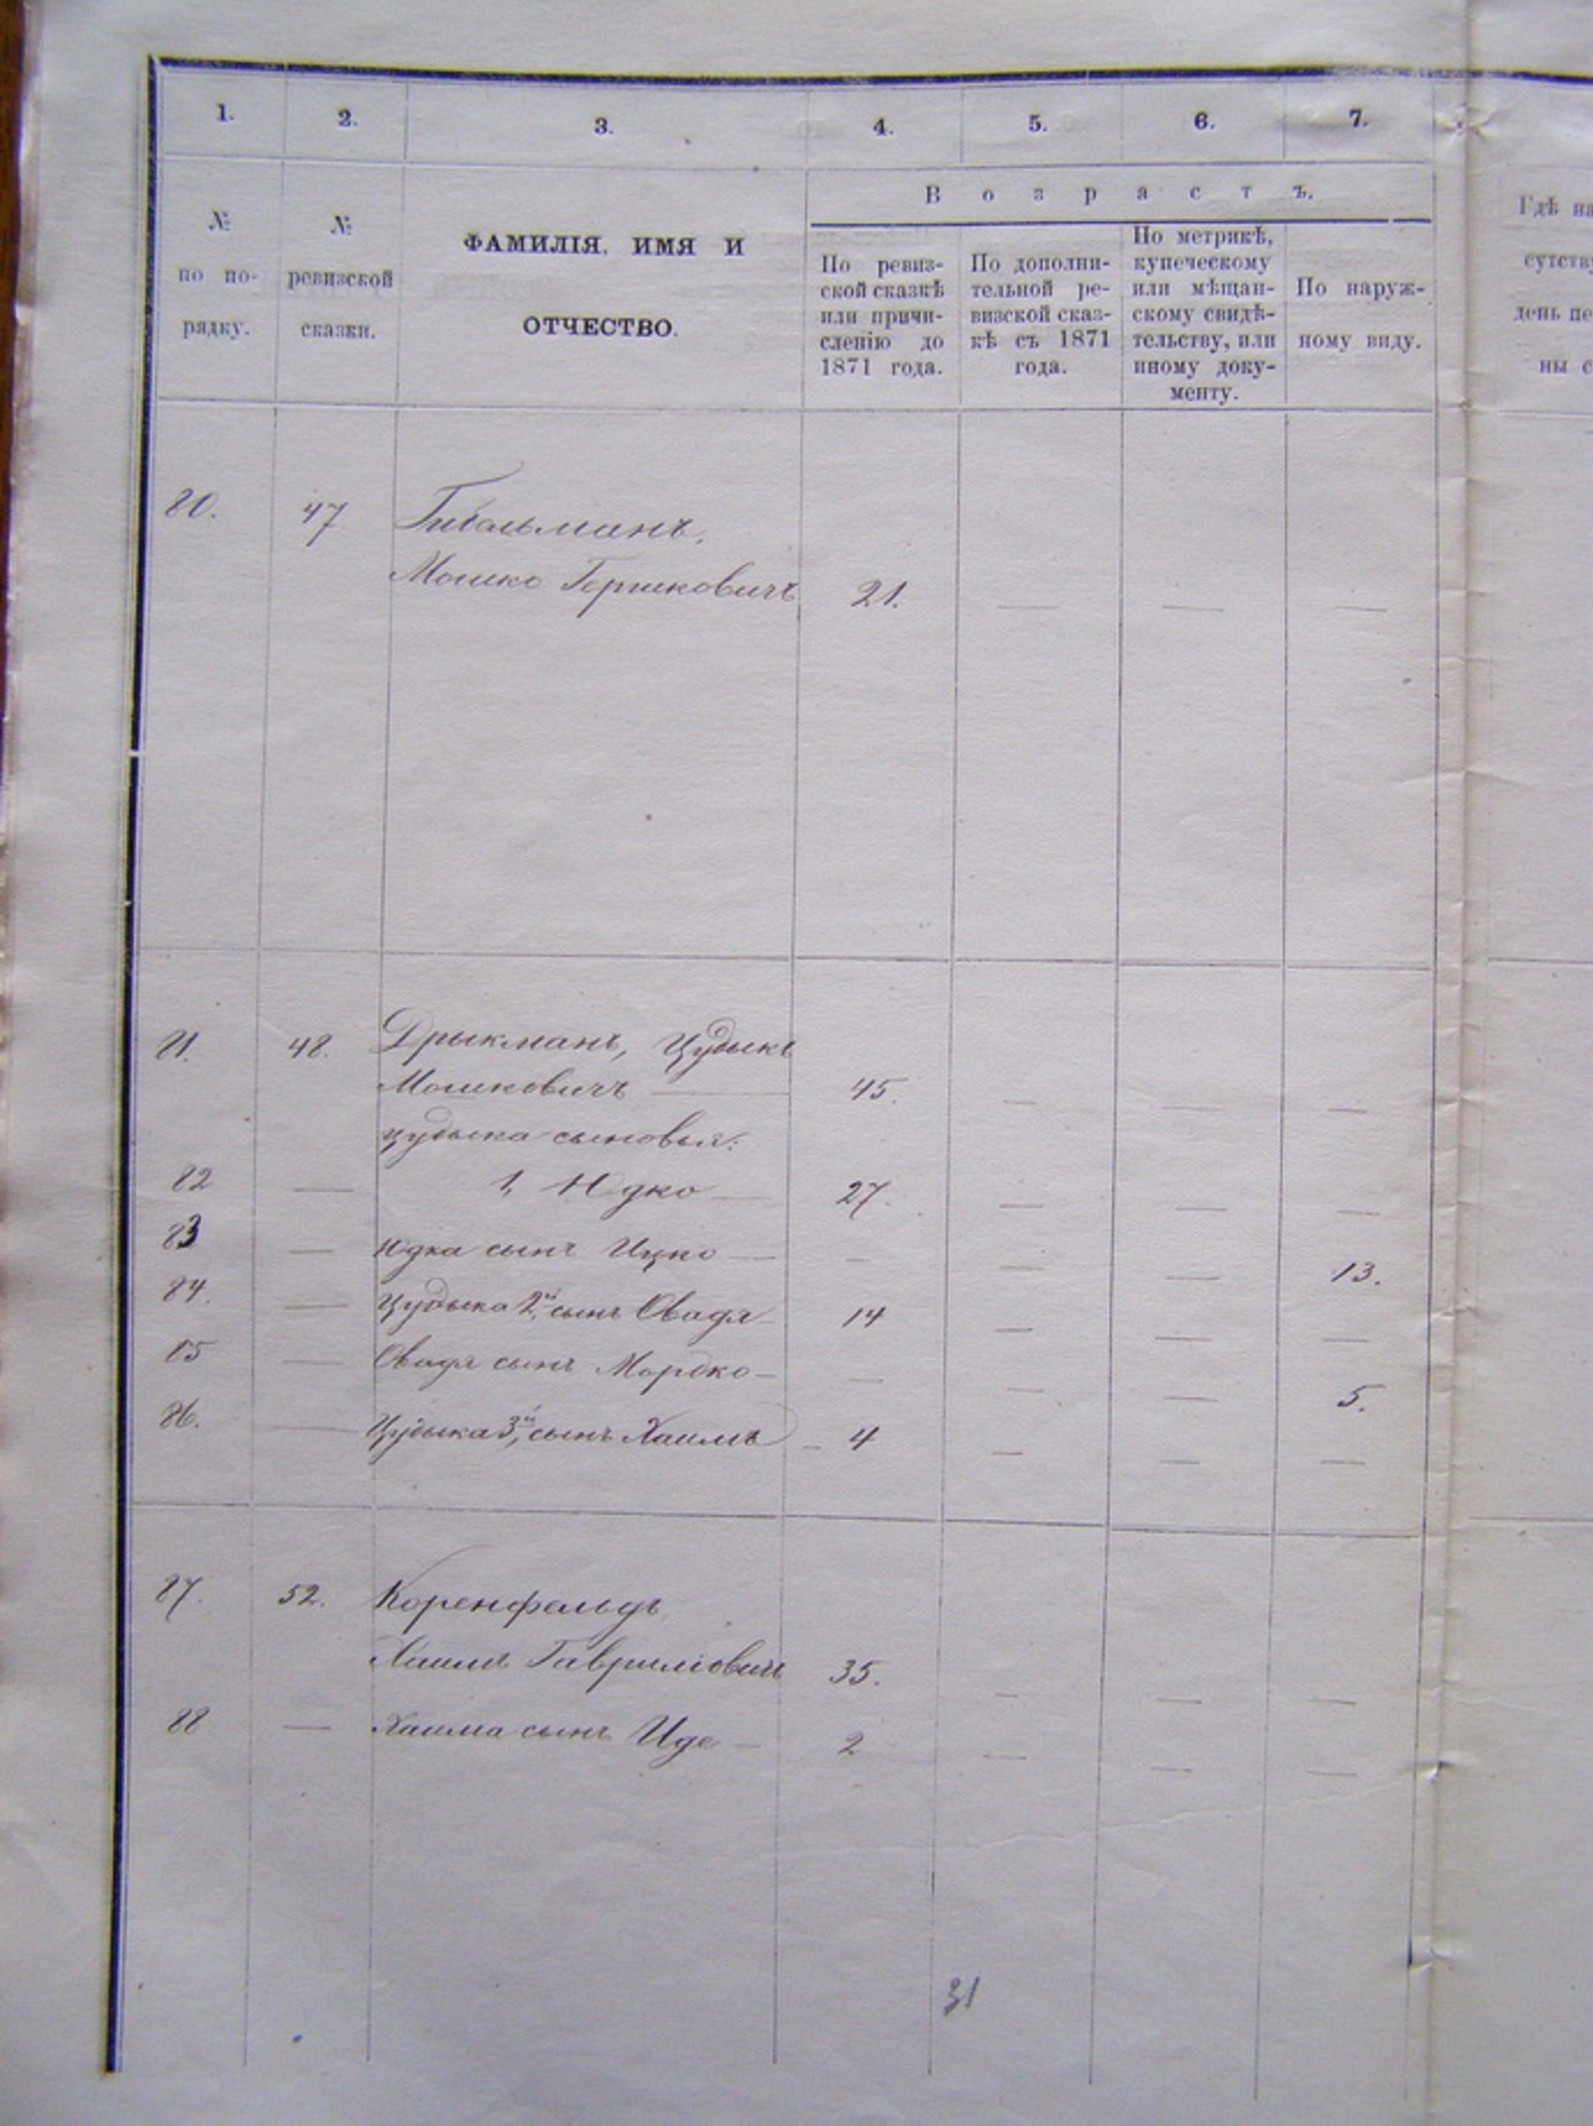 1. 2. 3. 4. 5. 6. 7.
№ по по-рядку.
№ ревизской сказки.
ФАМИЛІЯ, ИМЯ И
ОТЧЕСТВО.
Возрастъ.
По ревиз-
ской сказкѣ
или причи-
сленію до
1871 года.
По дополни-
тельной ре-
визской сказ-
кѣ съ 1871
года.
По метрикѣ,
купеческому
или мѣщан-
скому свидѣ-
тельству, или
иному доку-
менту.
По наруж-
ному виду.
Гдѣ на
сутству
день пе
ны с
80. 47 Гительманъ,
Мошко Гершковичъ 21. — — —
81. 48. Дрыкманъ, Цудыкъ
Мошковичъ — 45. — — —
цудыка сыновья:
82 — 1, Юдко — 27. — — —
83 — Юдка сынъ Ицко — — — — 13.
84. — Цудыка 2й сынъ Овадя — 14 — — —
85 — Овадя сынъ Мордко — — — — 5.
86. — Цудыка 3й сынъ Хаимъ — 4 — — —
87. 52. Коренфельдъ
Хаимъ Гавриліовичъ 35. — — —
88 — Хаима сынъ Иде — 2 — — —
31